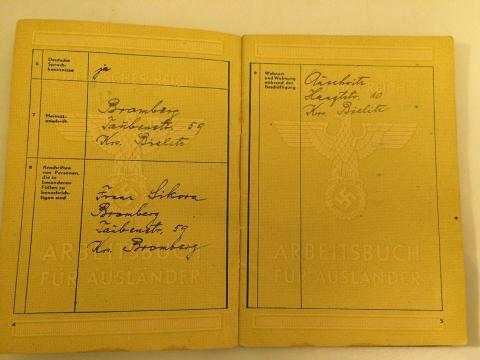 6
Deutsche
Sprach-
kenntnisse
ja
7
Heimat-
anschrift
Bromberg
Taubenstr. 59
Krs. Bielitz
8
Anschriften
von Personen,
die in
besonderen
Fällen zu
benachrich-
tigen sind
Franz Sikora
Bromberg
Taubenstr. 59
Kr. Bromberg
ARBEITSBUCH
FÜR AUSLÄNDER
4
9
Wohnort
und Wohnung
während der
Beschäftigung
Auschwitz
Hauptstr. 10
Krs. Bielitz
ARBEITSBUCH
FÜR AUSLÄNDER
5